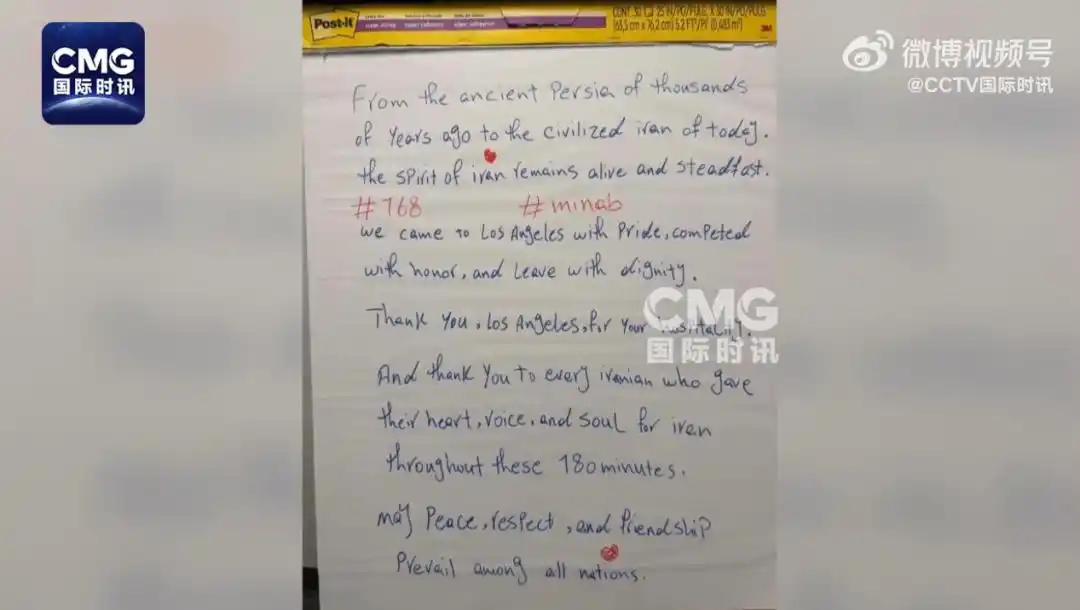 CMG
国际时讯
微博视频号
@CCTV国际时讯
Post-it
CONT. 30 25 IN/PO/PULG. X 30 IN/PO/PULG.
(63,5 cm x 76,2 cm) 5.2 FT²/PI² (0,483 m²)
3M
From the ancient Persia of thousands
of years ago to the civilized iran of today.
the spirit of iran remains alive and steadfast.
#168 #minab
we came to Los Angeles with Pride, competed
with honor, and Leave with dignity.
Thank you, Los Angeles, for your hospitality.
And thank you to every iranian who gave
their heart, voice, and soul for iran
throughout these 180 minutes.
may Peace, respect, and friendship
Prevail among all nations.
CMG
国际时讯